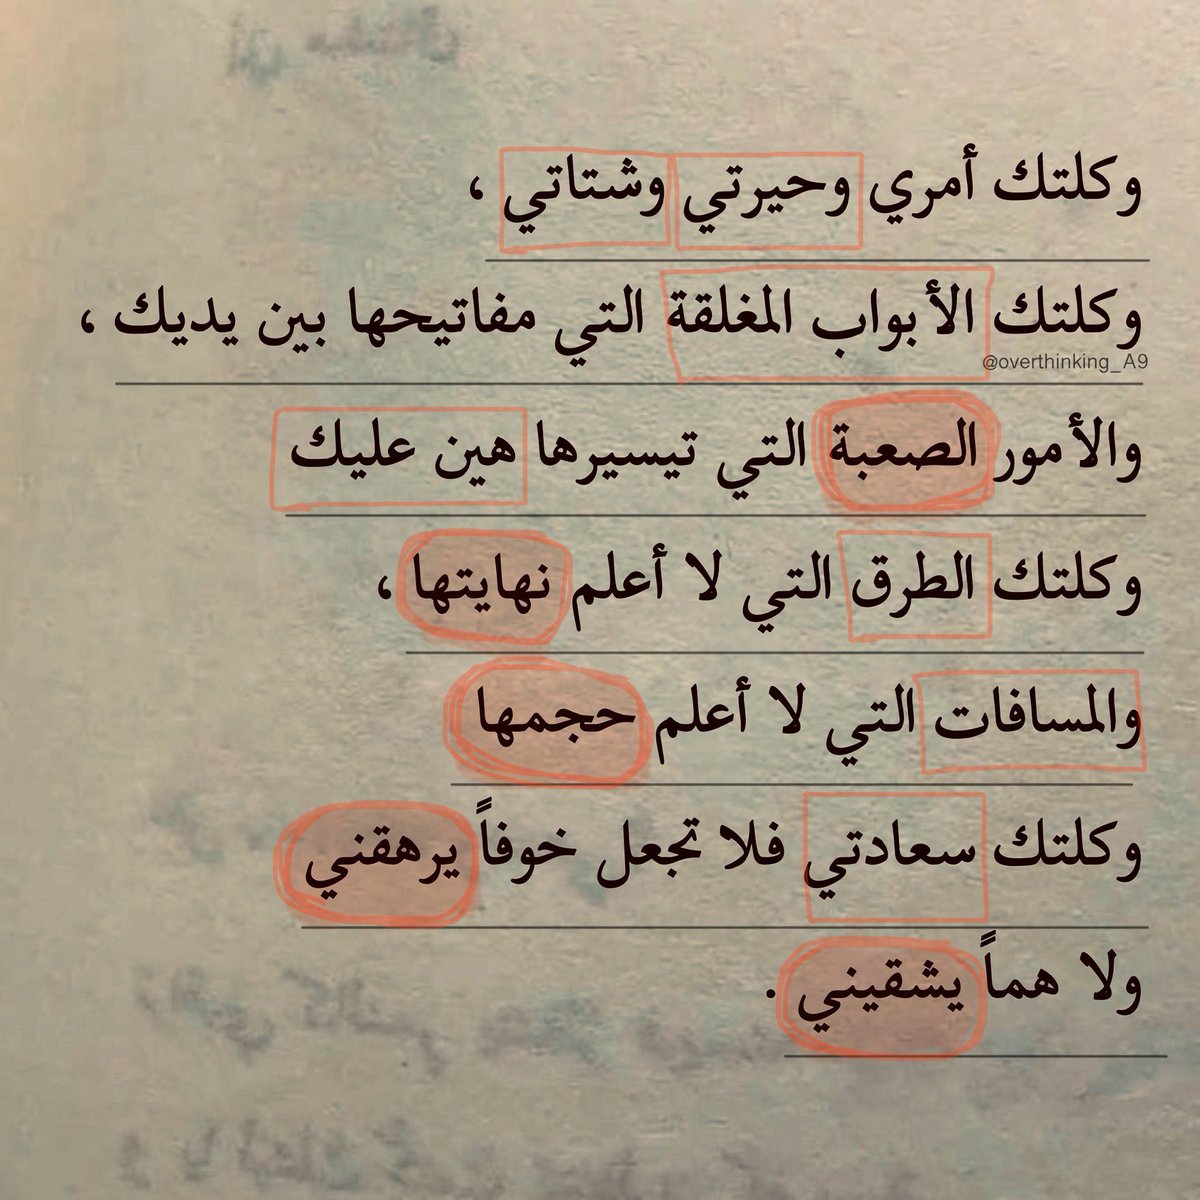 وكلتك أمري وحيرتي وشتاتي ،
وكلتك الأبواب المغلقة التي مفاتيحها بين يديك ،
@overthinking_A9
والأمور الصعبة التي تيسيرها هين عليك
وكلتك الطرق التي لا أعلم نهايتها ،
والمسافات التي لا أعلم حجمها
وكلتك سعادتي فلا تجعل خوفاً يرهقني
ولا هماً يشقيني .